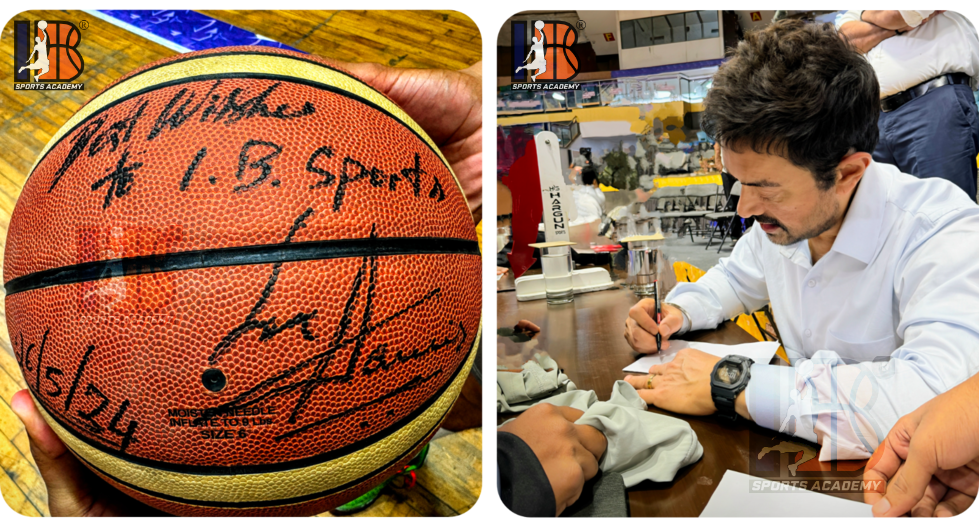 IB®
SPORTS ACADEMY
Best Wishes
to I.B. Sports
26/5/24
MOISTEN NEEDLE
SIZE 6
IB®
SPORTS ACADEMY
HARGUN
SPORTS ACADEMY